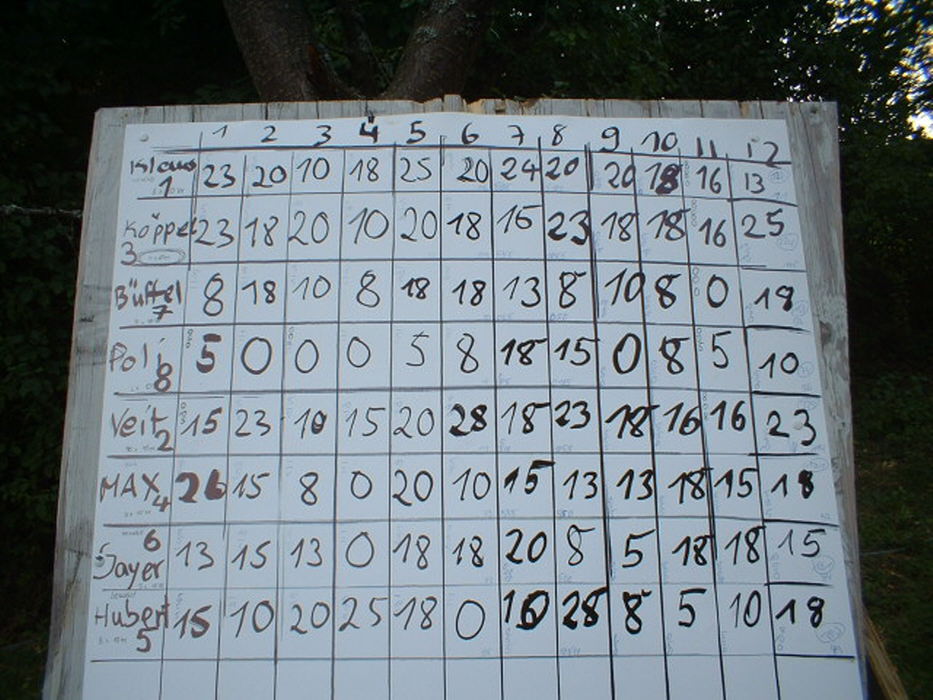 1 2 3 4 5 6 7 8 9 10 11 12
Klaus 23 20 10 18 25 20 24 20 20 18 16 13
1
Köppel 23 18 20 10 20 18 15 23 18 18 16 25
3
Büffel 8 18 10 8 18 18 13 8 10 8 0 18
7
Poli 5 0 0 0 5 8 18 15 0 8 5 10
8
Veit 15 23 10 15 20 28 18 23 18 16 16 23
2
MAX 26 15 8 0 20 10 15 13 13 18 15 18
4
6
Sayer 13 15 13 0 18 18 20 8 5 18 18 15
Hubert 15 10 20 25 18 0 10 28 8 5 10 18
5